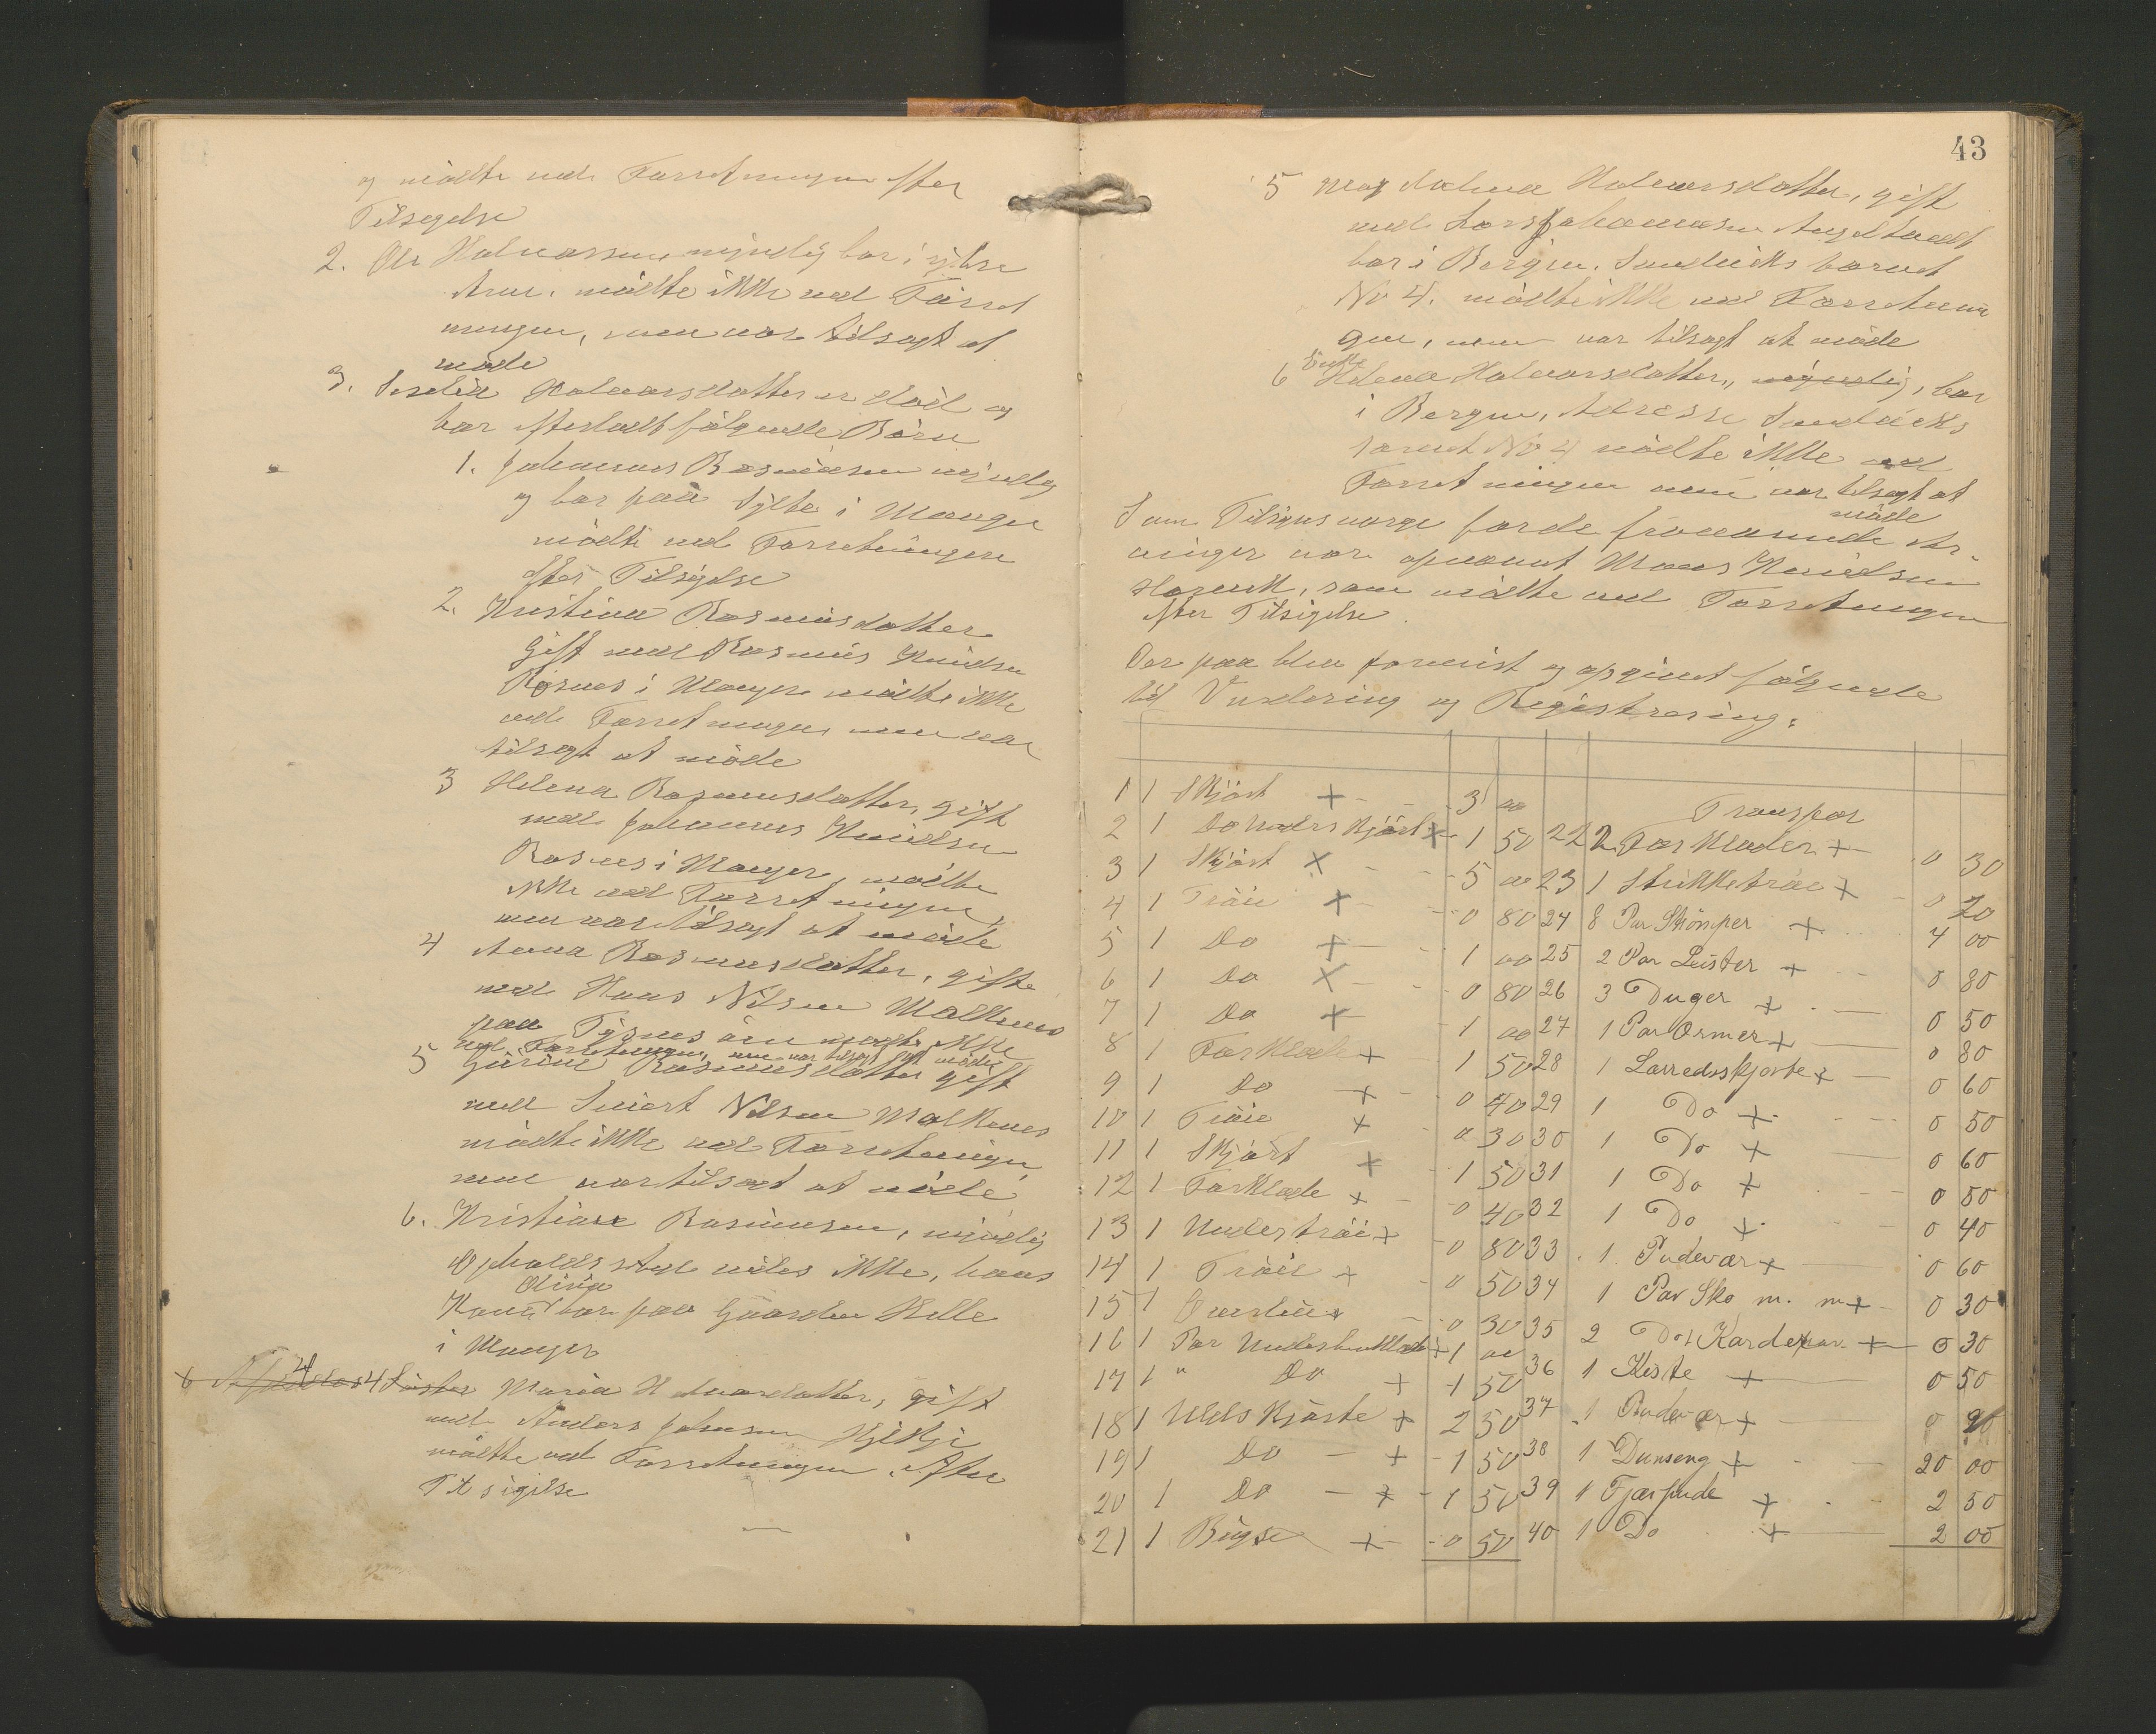 og mødte ved Forretningen efter
Tilsigelse
2. Ole Halvorsen myndig bor i
mødte ikke ved Forret
ningen, men var tilsagt at
møde
3. Halvorsdatter er død og
har efterladt følgende Børn
1. Johannes Rasmussen myndig
og bor paa Sylte i Manger
mødte ved Forretningen
efter Tilsigelse
2. Kristina Rasmusdatter
Gift med Rasmus Knudsen
Rosnes i Manger mødte ikke
ved Forretningen men var
tilsagt at møde
3 Helena Rasmusdatter, gift
med Johannes Knudsen
Rosnes i Manger, mødte
ikke ved Forretningen,
men var tilsagt at møde
4 Anna Rasmusdatter, gifte
med Hans Nilsen Malkenes
paa Tysnesøen mødte ikke
ved Forretningen, men var tilsagt at møde
5 Gurine Rasmusdatter gift
med Sivert Nilsen Malkenes
mødte ikke ved Forretningen
men var tilsagt at møde
6. Kristian Rasmussen, myndig
Opholdssted vides ikke, hans
Olina
Kone bor paa Gaarden Helle
i Manger
4 Søster Maria Halvorsdatter, gift
med Anders Johnsen
mødte ved Forretningen efter
Tilsigelse
43
5 Magdalena Halvorsdatter, gift
med Lars Johannesen
bor i Bergen. Sandviks
No 4. mødte ikke ved Forretnin
gen, men var tilsagt at møde
Enke
6 Helena Halvorsdatter, myndig, bor
i Bergen, Adresse Sandviks
No 4 mødte ikke ved
Forretningen men var tilsagt at
møde
Som Tilsynsværge for de fraværende Ar-
vinger var opnævnt Mons Knudsen
som mødte ved Forretningen
efter Tilsigelse.
Der paa blev forevist og opgivet følgende
til Vurdering og Registrering:
Transpor
1 1 Skjørt + 3 00
2 1 Do Underskjørt + 1 50
22 2 Forklæder + 0 30
3 1 Skjørt + 5 00
23 1 Strikketrøie + 0 70
4 1 Trøie + 0 80
24 8 Par Strømper + 4 00
5 1 Do + 1 00
25 2 Par Leister + 0 80
6 1 Do + 0 80
26 3 Duger + 0 50
7 1 Do + 1 00
27 1 Par Ormer + 0 80
8 1 Forklæde + 1 50
28 1 Lærredsskjorte + 0 60
9 1 Do + 0 40
29 1 Do + 0 50
10 1 Trøie + 0 30
30 1 Do + 0 60
11 1 Skjørt + 1 50
31 1 Do + 0 50
12 1 Forklæde + 0 40
32 1 Do + 0 40
13 1 Undertrøie + 0 80
33 1 Pudevar + 0 60
14 1 Trøie + 0 50
34 1 Par Sko m. m + 0 30
15 1 + 0 30
35 2 Do Karder + 0 30
16 1 Par Underbenklæder + 1 00
36 1 Kiste + 0 50
17 1 " Do + 1 50
37 1 Pudevar + 0
18 1 Uldskjorte + 2 50
38 1 Dunseng + 20 00
19 1 Do + 1 50
39 1 Fjærpude + 2 50
20 1 Do + 1 50
40 1 Do + 2 00
21 1 Buxe + 0 50